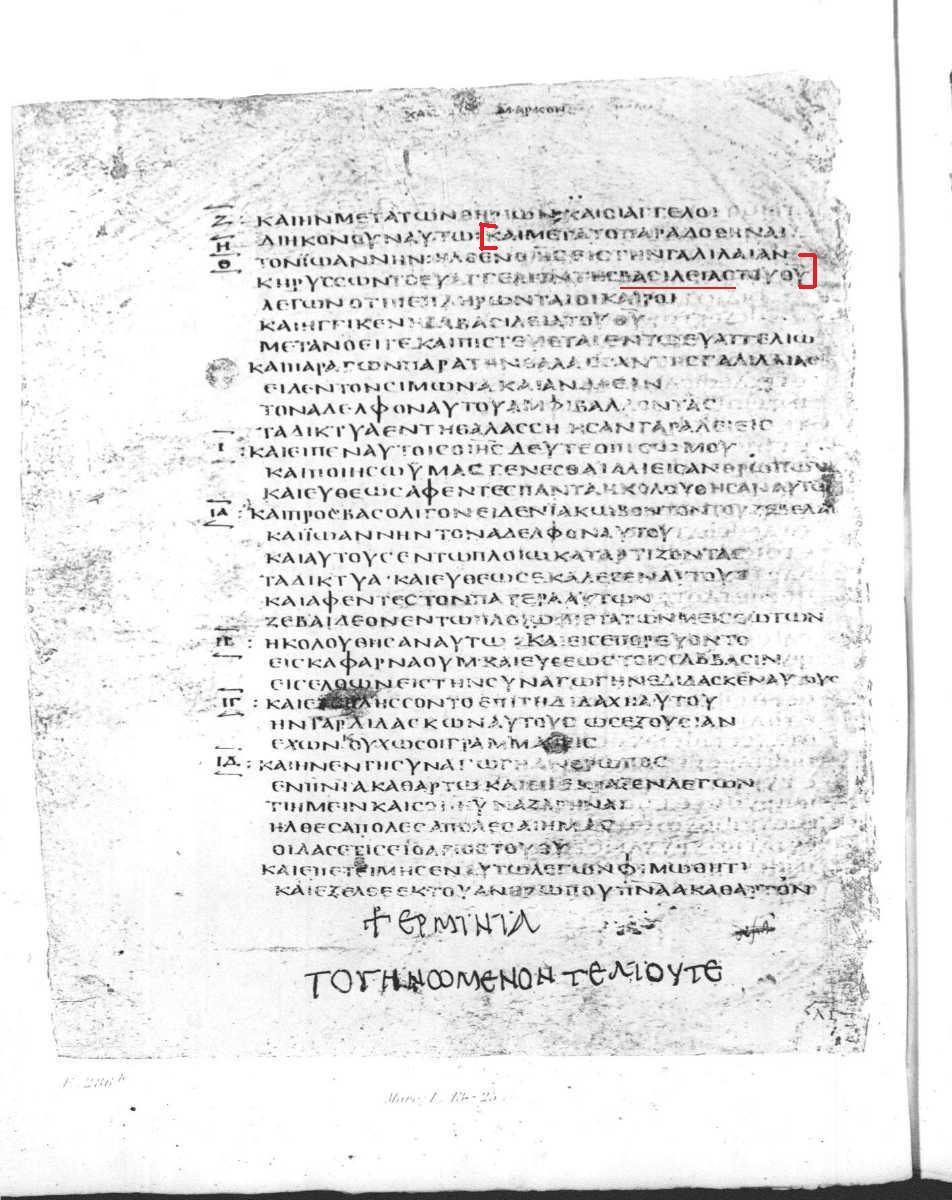 ΚΑΤ ΜΑΡΚΟΝ
Ζ ΚΑΙΗΝΜΕΤΑΤΩΝΘΗΡΙΩΝ ΚΑΙΟΙΑΓΓΕΛΟΙ
Η ΔΙΗΚΟΝΟΥΝΑΥΤΩ: ΚΑΙΜΕΤΑΤΟΠΑΡΑΔΟΘΗΝΑΙ
Θ ΤΟΝΪΩΑΝΝΗΝ:ΗΛΘΕΝΟΙΗϹΕΙϹΤΗΝΓΑΛΙΛΑΙΑΝ
ΚΗΡΥϹϹΩΝΤΟΕΥΑΓΓΕΛΙΟΝΤΗϹΒΑϹΙΛΕΙΑϹΤΟΥΘΥ
ΛΕΓΩΝΟΤΙΠΕΠΛΗΡΩΝΤΑΙΟΙΚΑΙΡΟΙ
ΚΑΙΗΓΓΙΚΕΝΗΒΑϹΙΛΕΙΑΤΟΥΘΥ
ΜΕΤΑΝΟΕΙΤΕΚΑΙΠΙϹΤΕΥΕΤΑΙΕΝΤΩΕΥΑΓΓΕΛΙΩ
ΚΑΙΠΑΡΑΓΩΝΠΑΡΑΤΗΝΘΑΛΑϹϹΑΝΤΗϹΓΑΛΙΛΑΙΑϹ
ΕΙΔΕΝΤΟΝϹΙΜΩΝΑΚΑΙΑΝΔΡΕΑΝ
ΤΟΝΑΔΕΛΦΟΝΑΥΤΟΥΑΜΦΙΒΑΛΛΟΝΤΑϹ
ΤΑΔΙΚΤΥΑΕΝΤΗΘΑΛΑϹϹΗ ΗϹΑΝΓΑΡΑΛΕΙΕΙϹ
Ι :ΚΑΙΕΙΠΕΝΑΥΤΟΙϹΟΙΗϹΔΕΥΤΕΟΠΙϹΩΜΟΥ
ΚΑΙΠΟΙΗϹΩΫΜΑϹΓΕΝΕϹΘΑΙΑΛΙΕΙϹΑΝΘΡΩΠΩΝ
ΚΑΙΕΥΘΕΩϹΑΦΕΝΤΕϹΠΑΝΤΑΗΚΟΛΟΥΘΗϹΑΝΑΥΤΩ
ΙΑ :ΚΑΙΠΡΟϹΒΑϹΟΛΙΓΟΝΕΙΔΕΝΪΑΚΩΒΟΝΤΟΝΤΟΥΖΕΒΕΔΑΙ
ΚΑΙΪΩΑΝΝΗΝΤΟΝΑΔΕΛΦΟΝΑΥΤΟΥ
ΚΑΙΑΥΤΟΥϹΕΝΤΩΠΛΟΙΩΚΑΤΑΡΤΙΖΟΝΤΑϹ
ΤΑΔΙΚΤΥΑ·ΚΑΙΕΥΘΕΩϹΕΚΑΛΕϹΕΝΑΥΤΟΥϹ
ΚΑΙΑΦΕΝΤΕϹΤΟΝΠΑΤΕΡΑΑΥΤΩΝ
ΖΕΒΑΙΔΕΟΝΕΝΤΩΠΛΟΙΩΜΕΤΑΤΩΝΜΕΙϹΘΩΤΩΝ
ΙΒ : ΗΚΟΛΟΥΘΗϹΑΝΑΥΤΩ :ΚΑΙΕΙϹΕΠΟΡΕΥΟΝΤΟ
ΕΙϹΚΑΦΑΡΝΑΟΥΜ·ΚΑΙΕΥΘΕΩϹΤΟΙϹϹΑΒΒΑϹΙΝ
ΕΙϹΕΛΘΩΝΕΙϹΤΗΝϹΥΝΑΓΩΓΗΝΕΔΙΔΑϹΚΕΝΑΥΤΟΥϹ
ΙΓ : ΚΑΙΕΞΕΠΛΗϹϹΟΝΤΟΕΠΙΤΗΔΙΔΑΧΗΑΥΤΟΥ
ΗΝΓΑΡΔΙΔΑϹΚΩΝΑΥΤΟΥϹ ΩϹΕΞΟΥϹΙΑΝ
ΕΧΩΝ·ΟΥΧΩϹΟΙΓΡΑΜΜΑΤΕΙϹ
ΙΔ :ΚΑΙΗΝΕΝΤΗϹΥΝΑΓΩΓΗΑΝΘΡΩΠΟϹ
ΕΝΠΝΙΑΚΑΘΑΡΤΩΚΑΙΕΚΡΑΞΕΝΛΕΓΩΝ
ΤΙΗΜΕΙΝΚΑΙϹΟΙΙΗΥΝΑΖΑΡΗΝΑΙ
ΗΛΘΕϹΑΠΟΛΕϹΑΙΗΜΑϹ
ΟΙΔΑϹΕΤΙϹΕΙΟΑΓΙΟϹΤΟΥΘΥ
ΚΑΙΕΠΕΤΕΙΜΗϹΕΝΑΥΤΩΛΕΓΩΝΦΙΜΩΘΗΤΙ
ΚΑΙΕΞΕΛΘΕΕΚΤΟΥΑΝΘΡΩΠΟΥΠΝΑΑΚΑΘΑΡΤΟΝ
ϮΕΡΜΙΝΙΑ
ΤΟΥΓΗΝΩΜΕΝΟΝΤΕΛΙΟΥΤΕ
F. 286ᵇ
Marc. I. 13–25